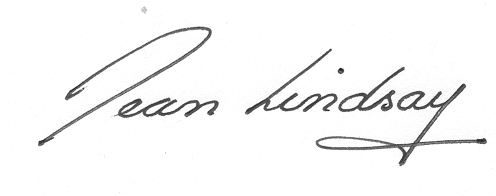 Jean Lindsay